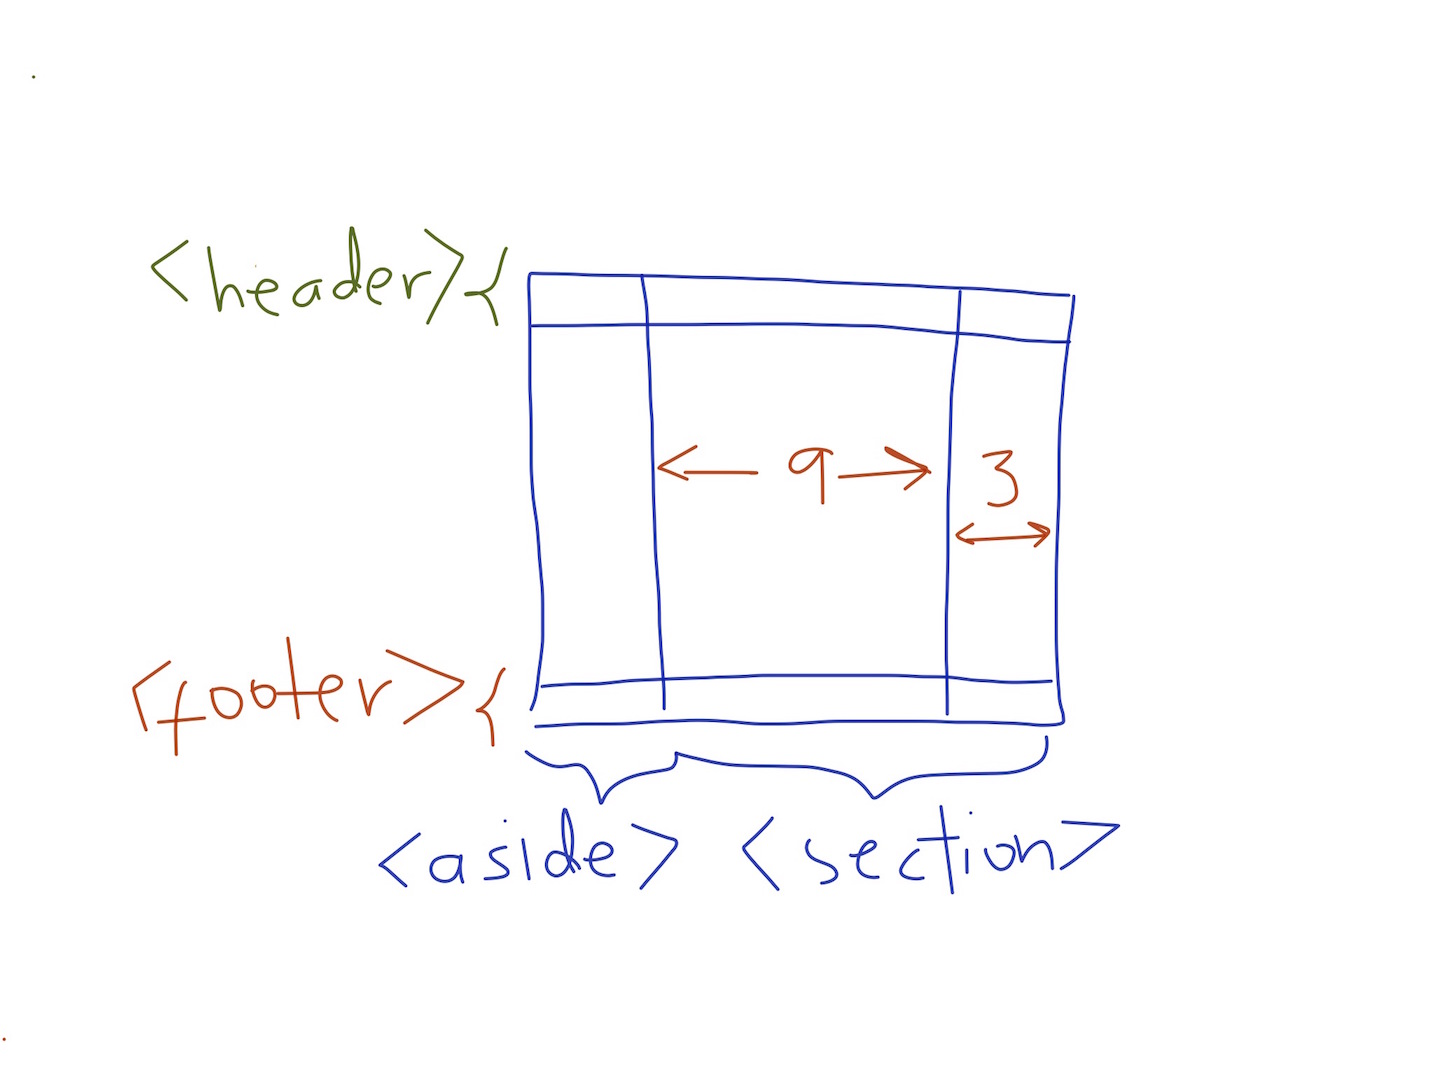 <header>{
9
3
<footer>{
<aside> <section>